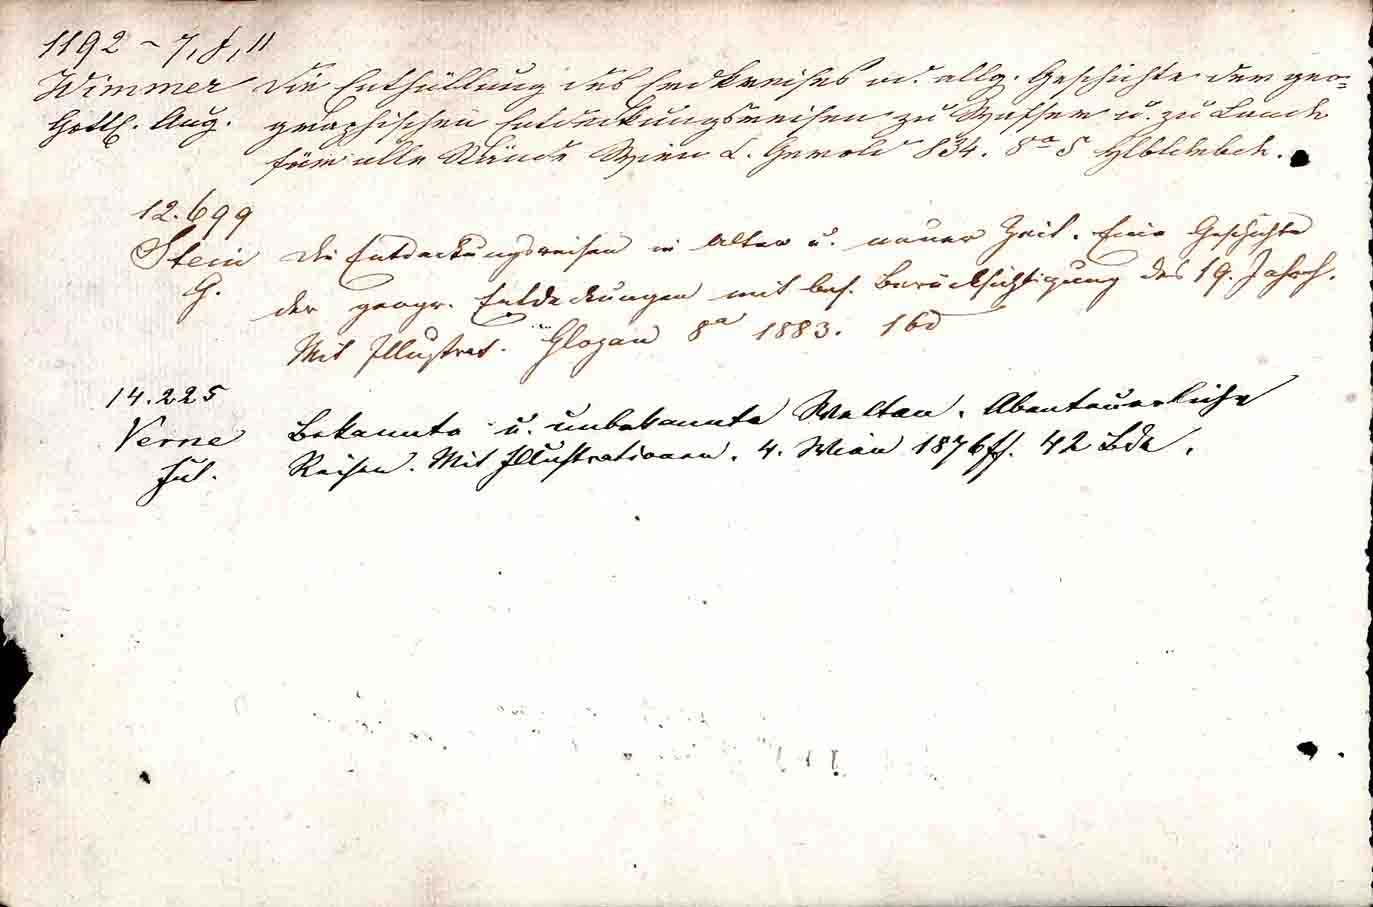 1192 – 7, J, 11
Wimmer Die Enthüllung des Erdkreises od. allg. Geschichte der geo=
Gottl. Aug. graphischen Entdeckungsreisen zu Wasser u. zu Lande
für alle Stände Wien C. Gerold 834. 8° 5 Hlbldrbde.
12.699
Stein Die Entdeckungsreisen in alter u. neuer Zeit. Eine Geschichte
G. der geogr. Entdeckungen mit bes. Berücksichtigung des 19. Jahrh.
Mit Illustrat. Glogau 8° 1883. 1 Bd
14.225
Verne Bekannte u. unbekannte Welten. Abenteuerliche
Jul. Reisen. Mit Illustrationen. 4. Wien 1876ff. 42 Bde.